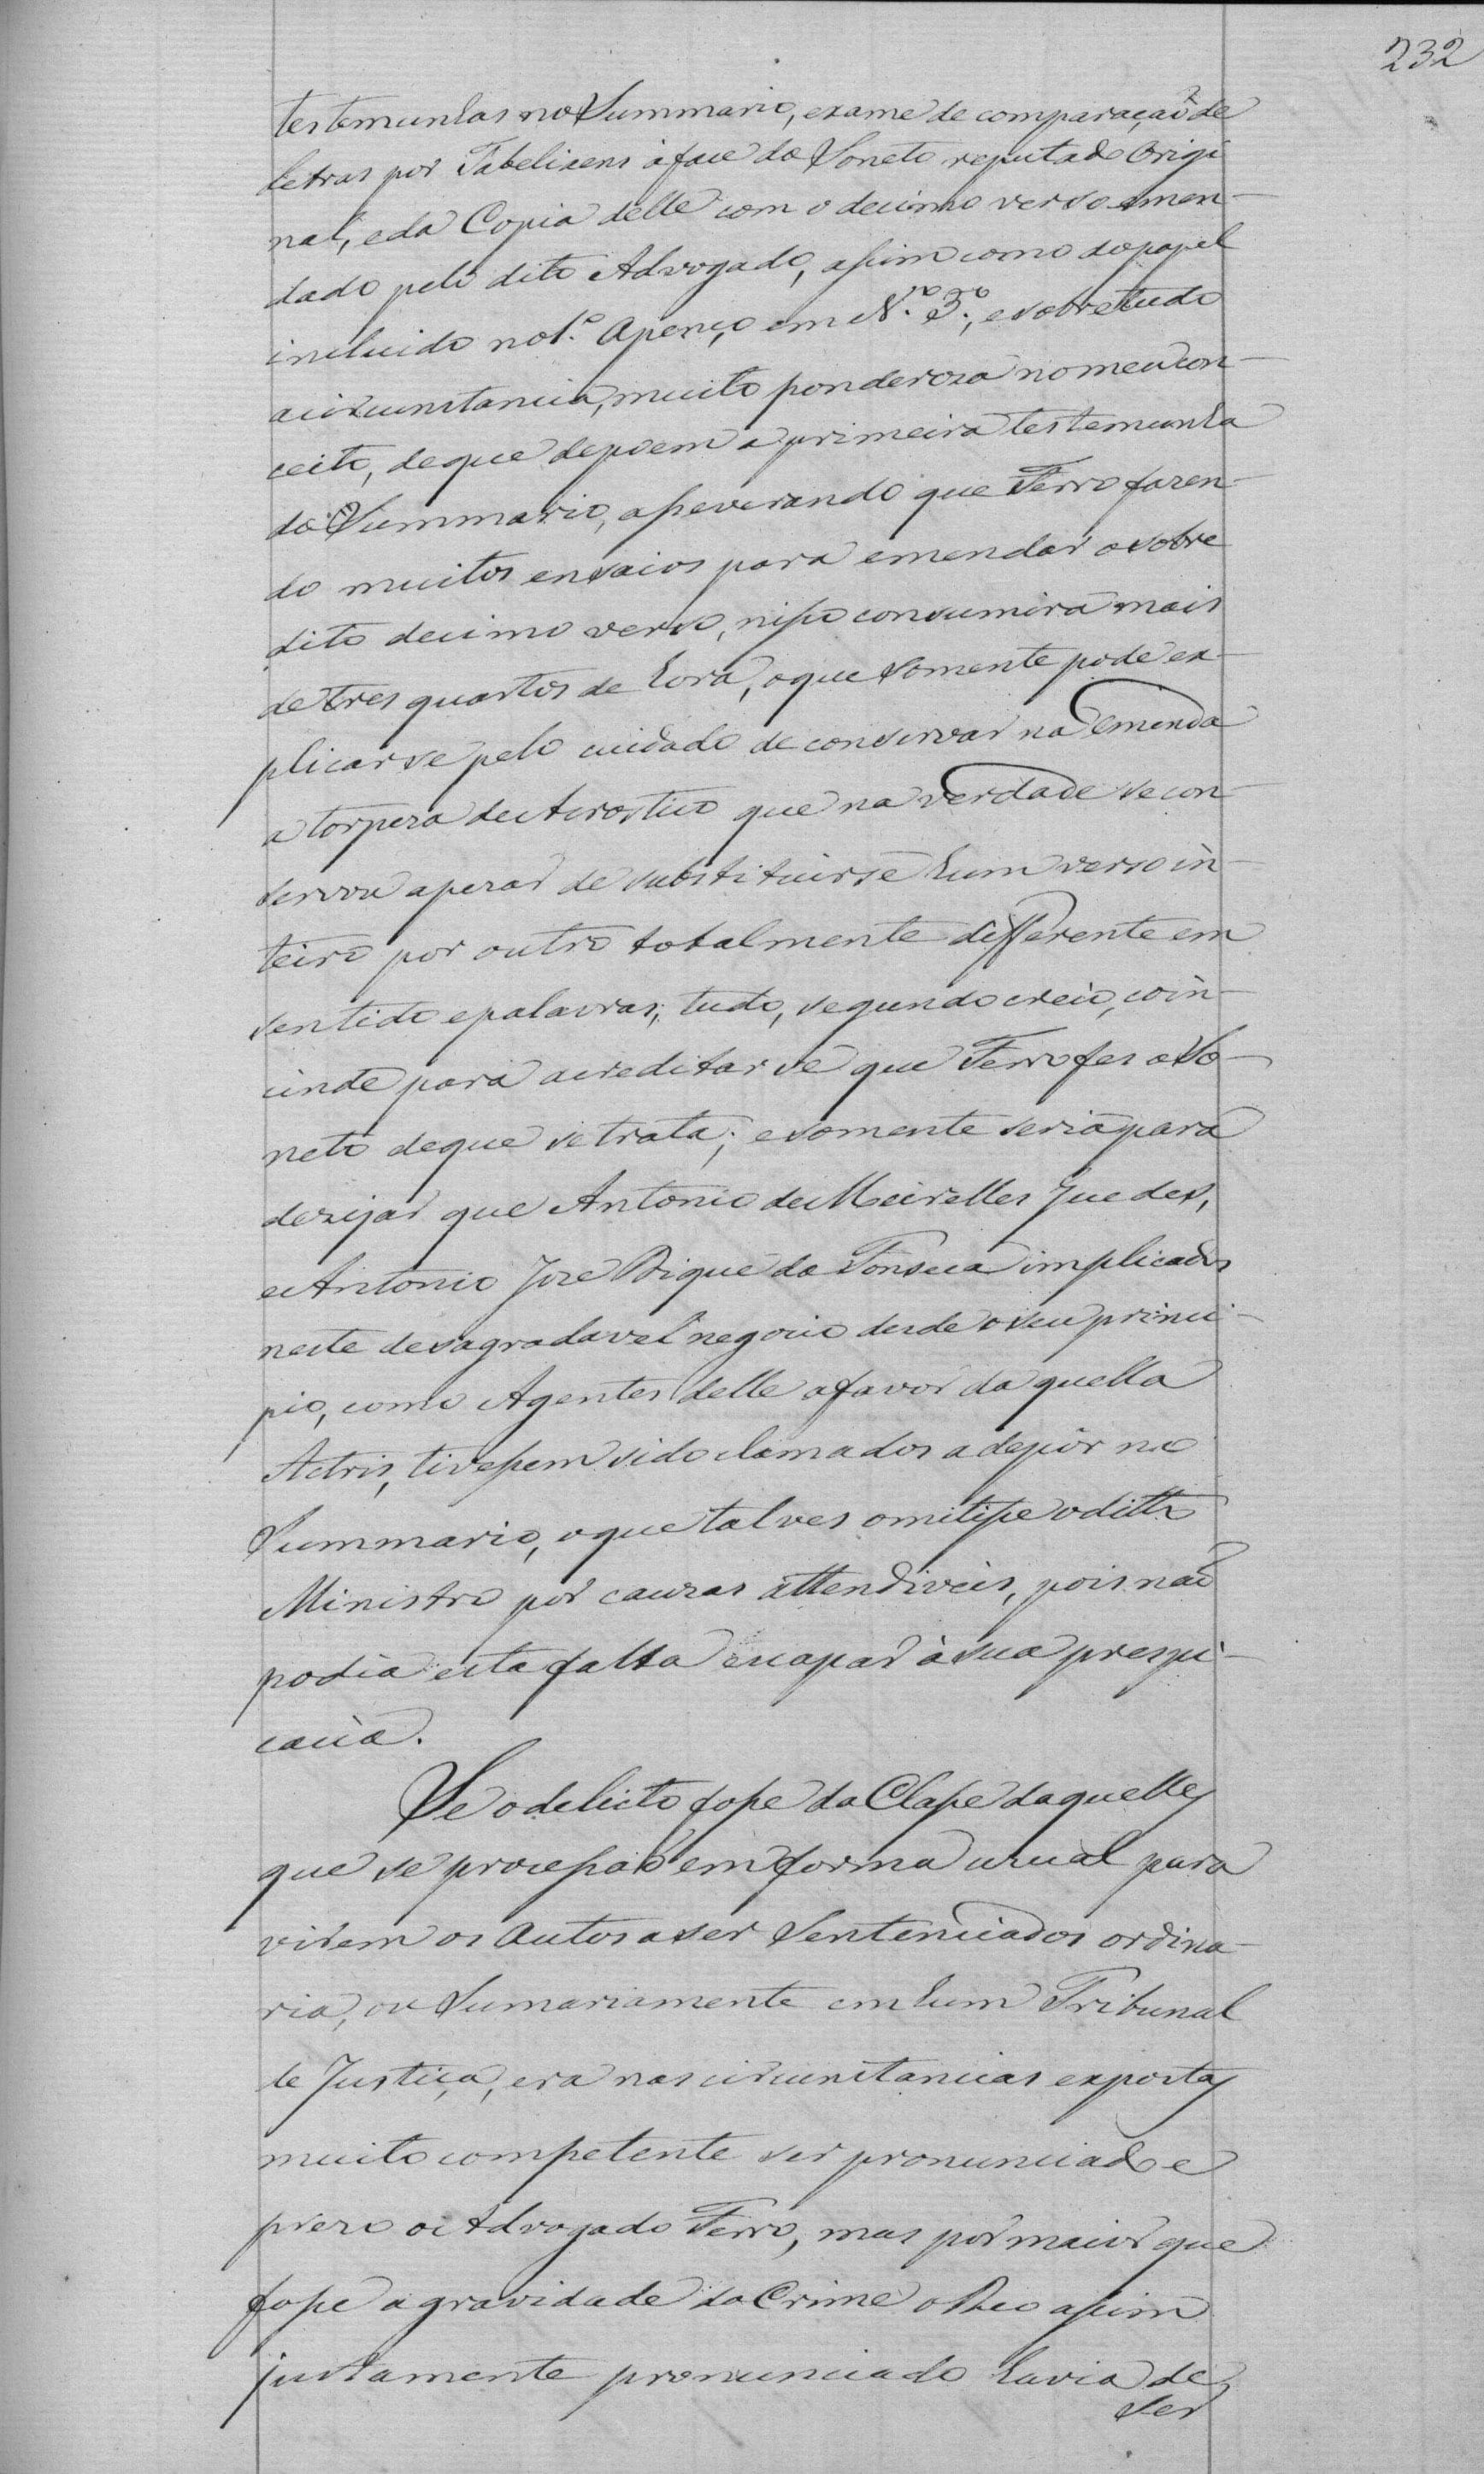 232
testemunhas no Summario, exame de comparação de
letras por Tabeliaens á face do Soneto reputado Origi
nal, e da Copia delle com o decimo verso emen-
dado pelo dito Advogado, assim como do papel
incluido no 1.º Apenço em N.º 3.º, e sobretudo
a circunstancia, muito ponderoza no meu con-
ceito, de que depoem a primeira testemunha
do Summario, asseverando que Ferro fazen-
do muitos ensaios para emendar o sobre
dito decimo verso, nisso consumira mais
de tres quartos de hora, o que somente pode ex-
plicarse pelo cuidado de conservar na emenda
a torpeza do Acrostico que na verdade se con-
servou apezar de substituirse hum verso in-
teiro por outro totalmente differente em
sentido e palavras; tudo, segundo creio, coin-
cinde para acreditar se que Ferro fes o So-
neto de que se trata; e somente seria para
dezejar que Antonio de Meirelles Guedes,
e Antonio Joze Bique da Fonseca implicados
neste desagradavel negocio desde o seu princi-
pio, como Agentes delle a favor da quella
Actris, tivessem sido chamados a depôr no
Summario, o que talves omitisse o ditto
Ministro por cauzas attendiveis, pois não
podia esta falta escapar á sua prespi-
cacia.
Se o delicto fosse da Classe daquelles
que se processão em forma uzual para
virem os Autos a ser Sentenciados ordina-
ria, ou Sumariamente em hum Tribunal
de Justiça, era nas circunstancias expostas
muito competente ser pronunciado e
prezo o Advogado Ferro, mas por maior que
fosse a gravidade do Crime o Reo assim
justamente pronunciado havia de
ser